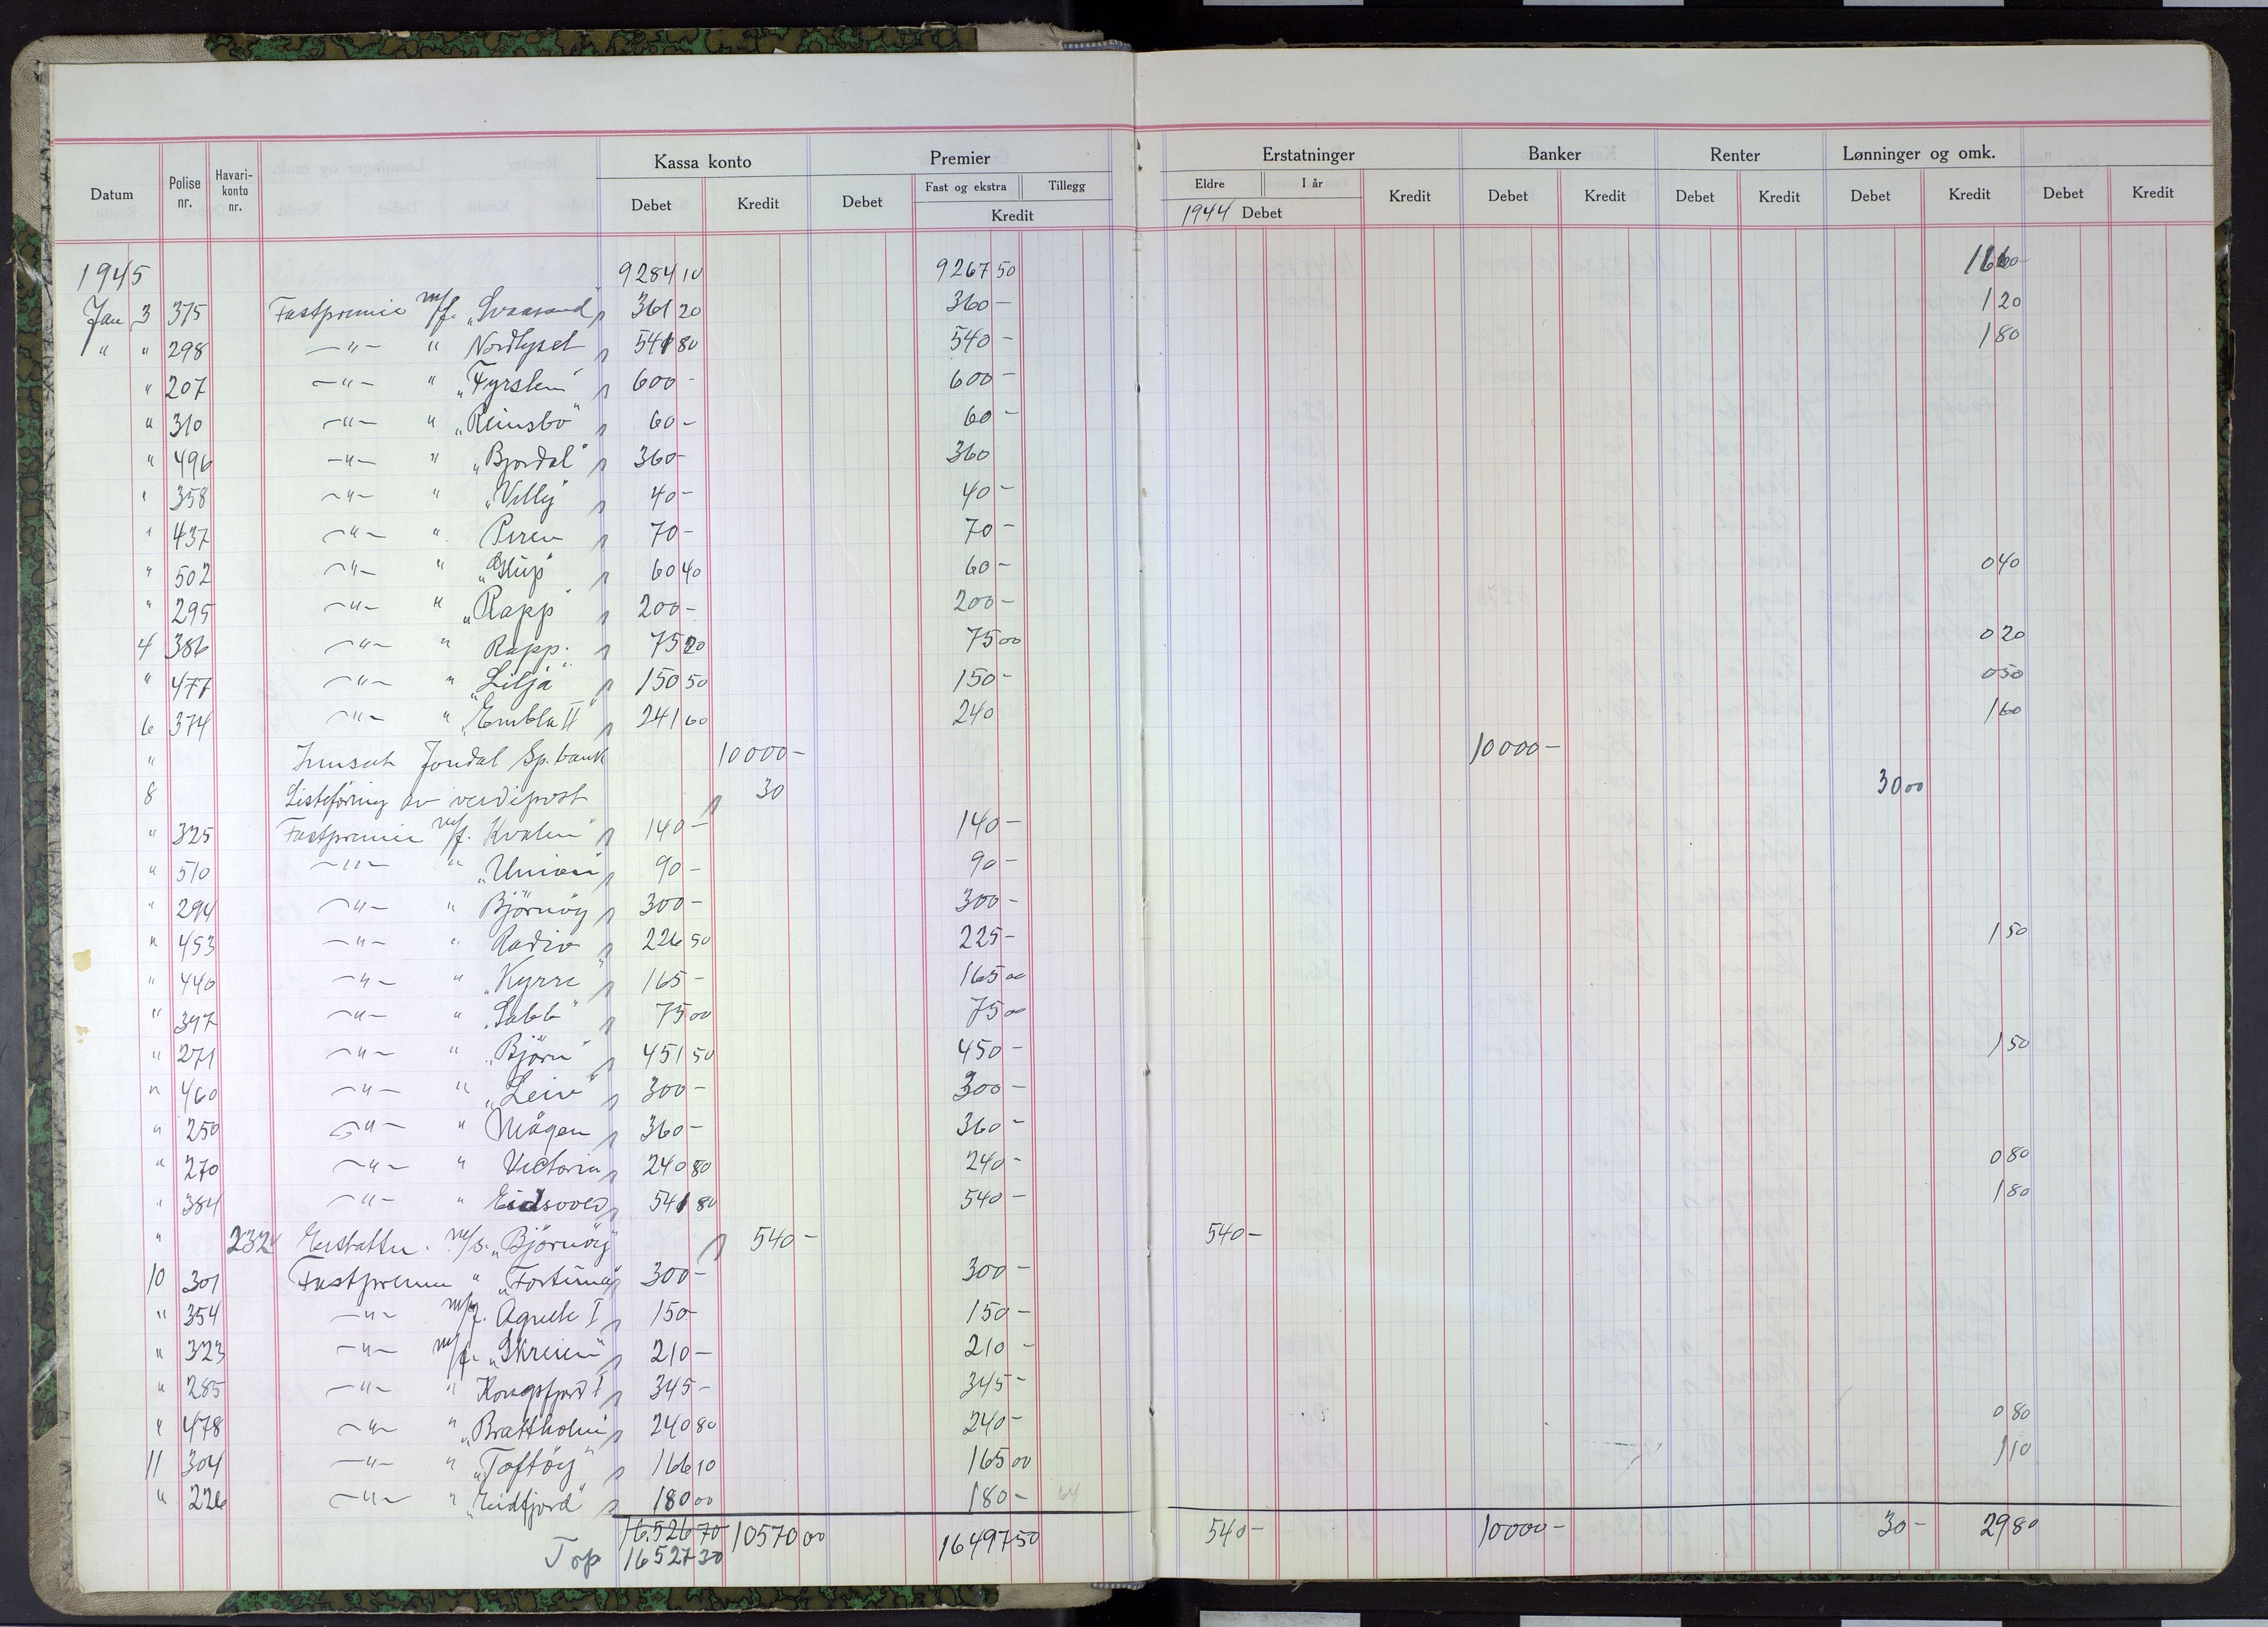 Kassa konto Premier Erstatninger Banker Renter Lønninger og omk.
Datum Polise nr. Havari-konto nr. Debet Kredit Debet Fast og ekstra Tillegg Kredit Eldre I år 1944 Debet Kredit Debet Kredit Debet Kredit Debet Kredit Debet Kredit
1945 9284 10 9267 50 16 60
Jan 3 375 Fastpremie m/f. „Svaasand" 361 20 360 — 1 20
" " 298 —"— " Nordlyset 541 80 540 — 1 80
" 207 —"— " „Fyrsten" 600 - 600 —
" 310 —"— " „Reinsbo" 60 - 60 —
" 496 —"— " „Bjordal" 360 - 360
" 358 —"— " „Villy" 40 - 40 —
" 437 —"— " Peren 70 - 70 —
" 502 —"— " 60 40 60 — 0 40
" 295 —"— " „Rapp" 200 - 200 —
4 386 —"— " Rapp. 75 20 75 00 0 20
" 477 —"— " „Lilja" 150 50 150 — 0 50
6 374 —"— " „Embla II" 241 60 240 1 60
" Innsatt Jondal Sp. bank 10000 — 10000 —
8 Listeføring av verdipost 30 30 00
" 325 Fastpremie m/f. Kvalen" 140 — 140 —
" 510 —"— " „Union" 90 — 90 —
" 294 —"— " Björnöy 300 — 300 —
" 453 —"— " Radio 226 50 225 — 1 50
" 440 —"— " „Kyrre" 165 — 165 00
" 397 —"— " „Sabb" 75 00 75 00
" 271 —"— " „Björn" 451 50 450 — 1 50
" 460 —"— " „Leiv" 300 — 300 —
" 250 —"— " Mågen 360 — 360 —
" 270 —"— " Victoria 240 80 240 — 0 80
" 384 —"— " Eidsvold 541 80 540 — 1 80
" 2324 Erstattn. m/s. „Björnöy" 540 — 540 —
10 301 Fastpremie " „Fortuna" 300 — 300 —
" 354 —"— m/f. Agnete I 150 - 150 —
" 323 —"— m/f. „Skreien" 210 — 210 —
" 285 —"— " Kongsfjord I 345 — 345 —
" 478 —"— " „Brattholm" 240 80 240 — 0 80
11 304 —"— " „Toftöy" 166 10 165 00 1 10
" 226 —"— " „Eidfjord" 180 00 180 — 64
16.526 70 10570 00 16497 50 540 — 10000 — 30 — 29 80
Top 16527 30